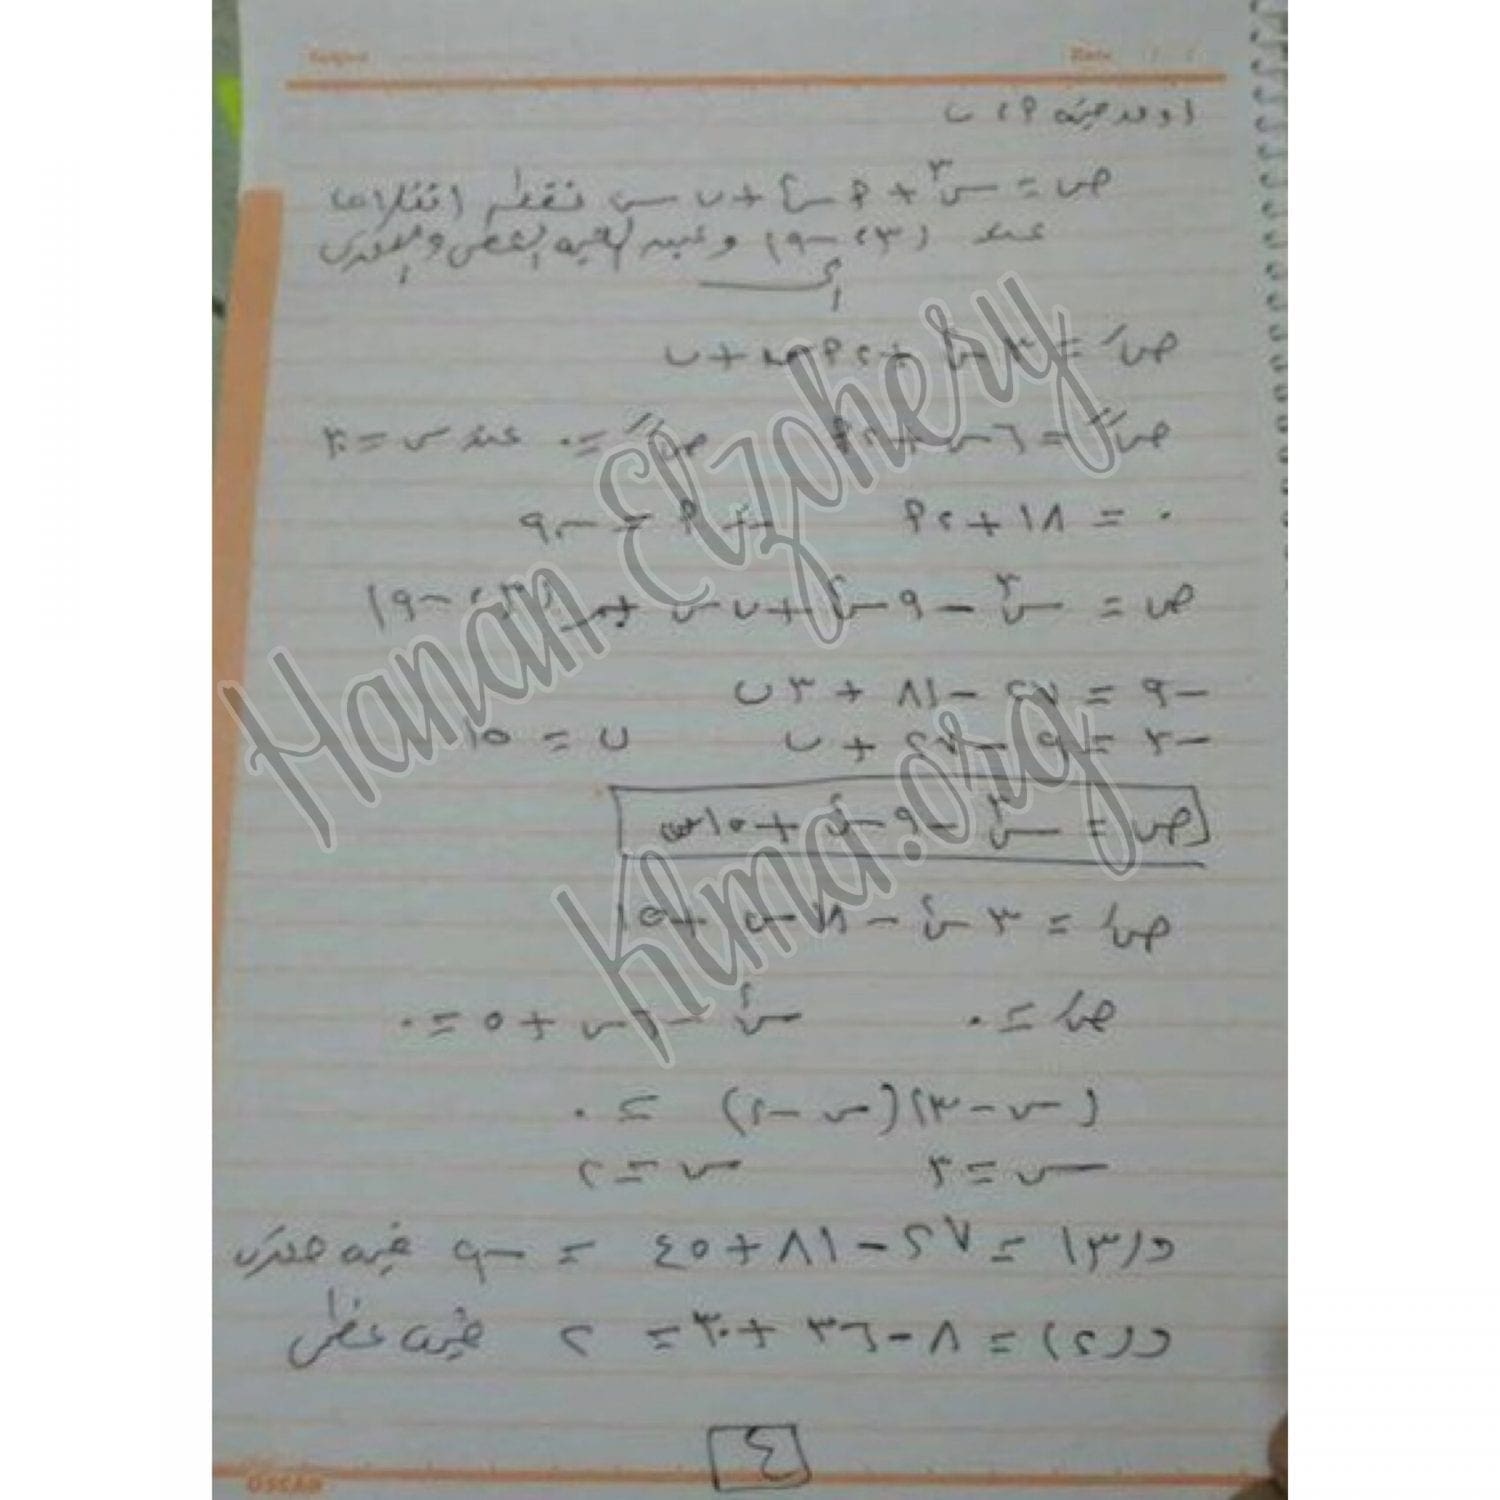 Subject Date / /
اوجد قيمة P، ب
ص = س٣ + P س٢ + ب س نقطة انقلابها
عند (٣، -٩) وعين القيم العظمى والصغرى
ص′ = ٣س٢ + ٢P س + ب
ص″ = ٦س + ٢P ص″ = ٠ عند س = ٣
٠ = ١٨ + ٢P P = -٩
ص = س٣ - ٩س٢ + ب س (٣، -٩)
-٩ = ٢٧ - ٨١ + ٣ب
-٣ = ٩ - ٢٧ + ب ب = ١٥
ص = س٣ - ٩س٢ + ١٥س
ص′ = ٣س٢ - ١٨س + ١٥
ص′ = ٠ س٢ - ٦س + ٥ = ٠
(س - ٣)(س - ٢) = ٠
س = ٣ س = ٢
د(٣) = ٢٧ - ٨١ + ٤٥ = -٩ قيمة صغرى
د(٢) = ٨ - ٣٦ + ٣٠ = ٢ قيمة عظمى
٤
OSCAR
Hanan Elzohery
Klma.org